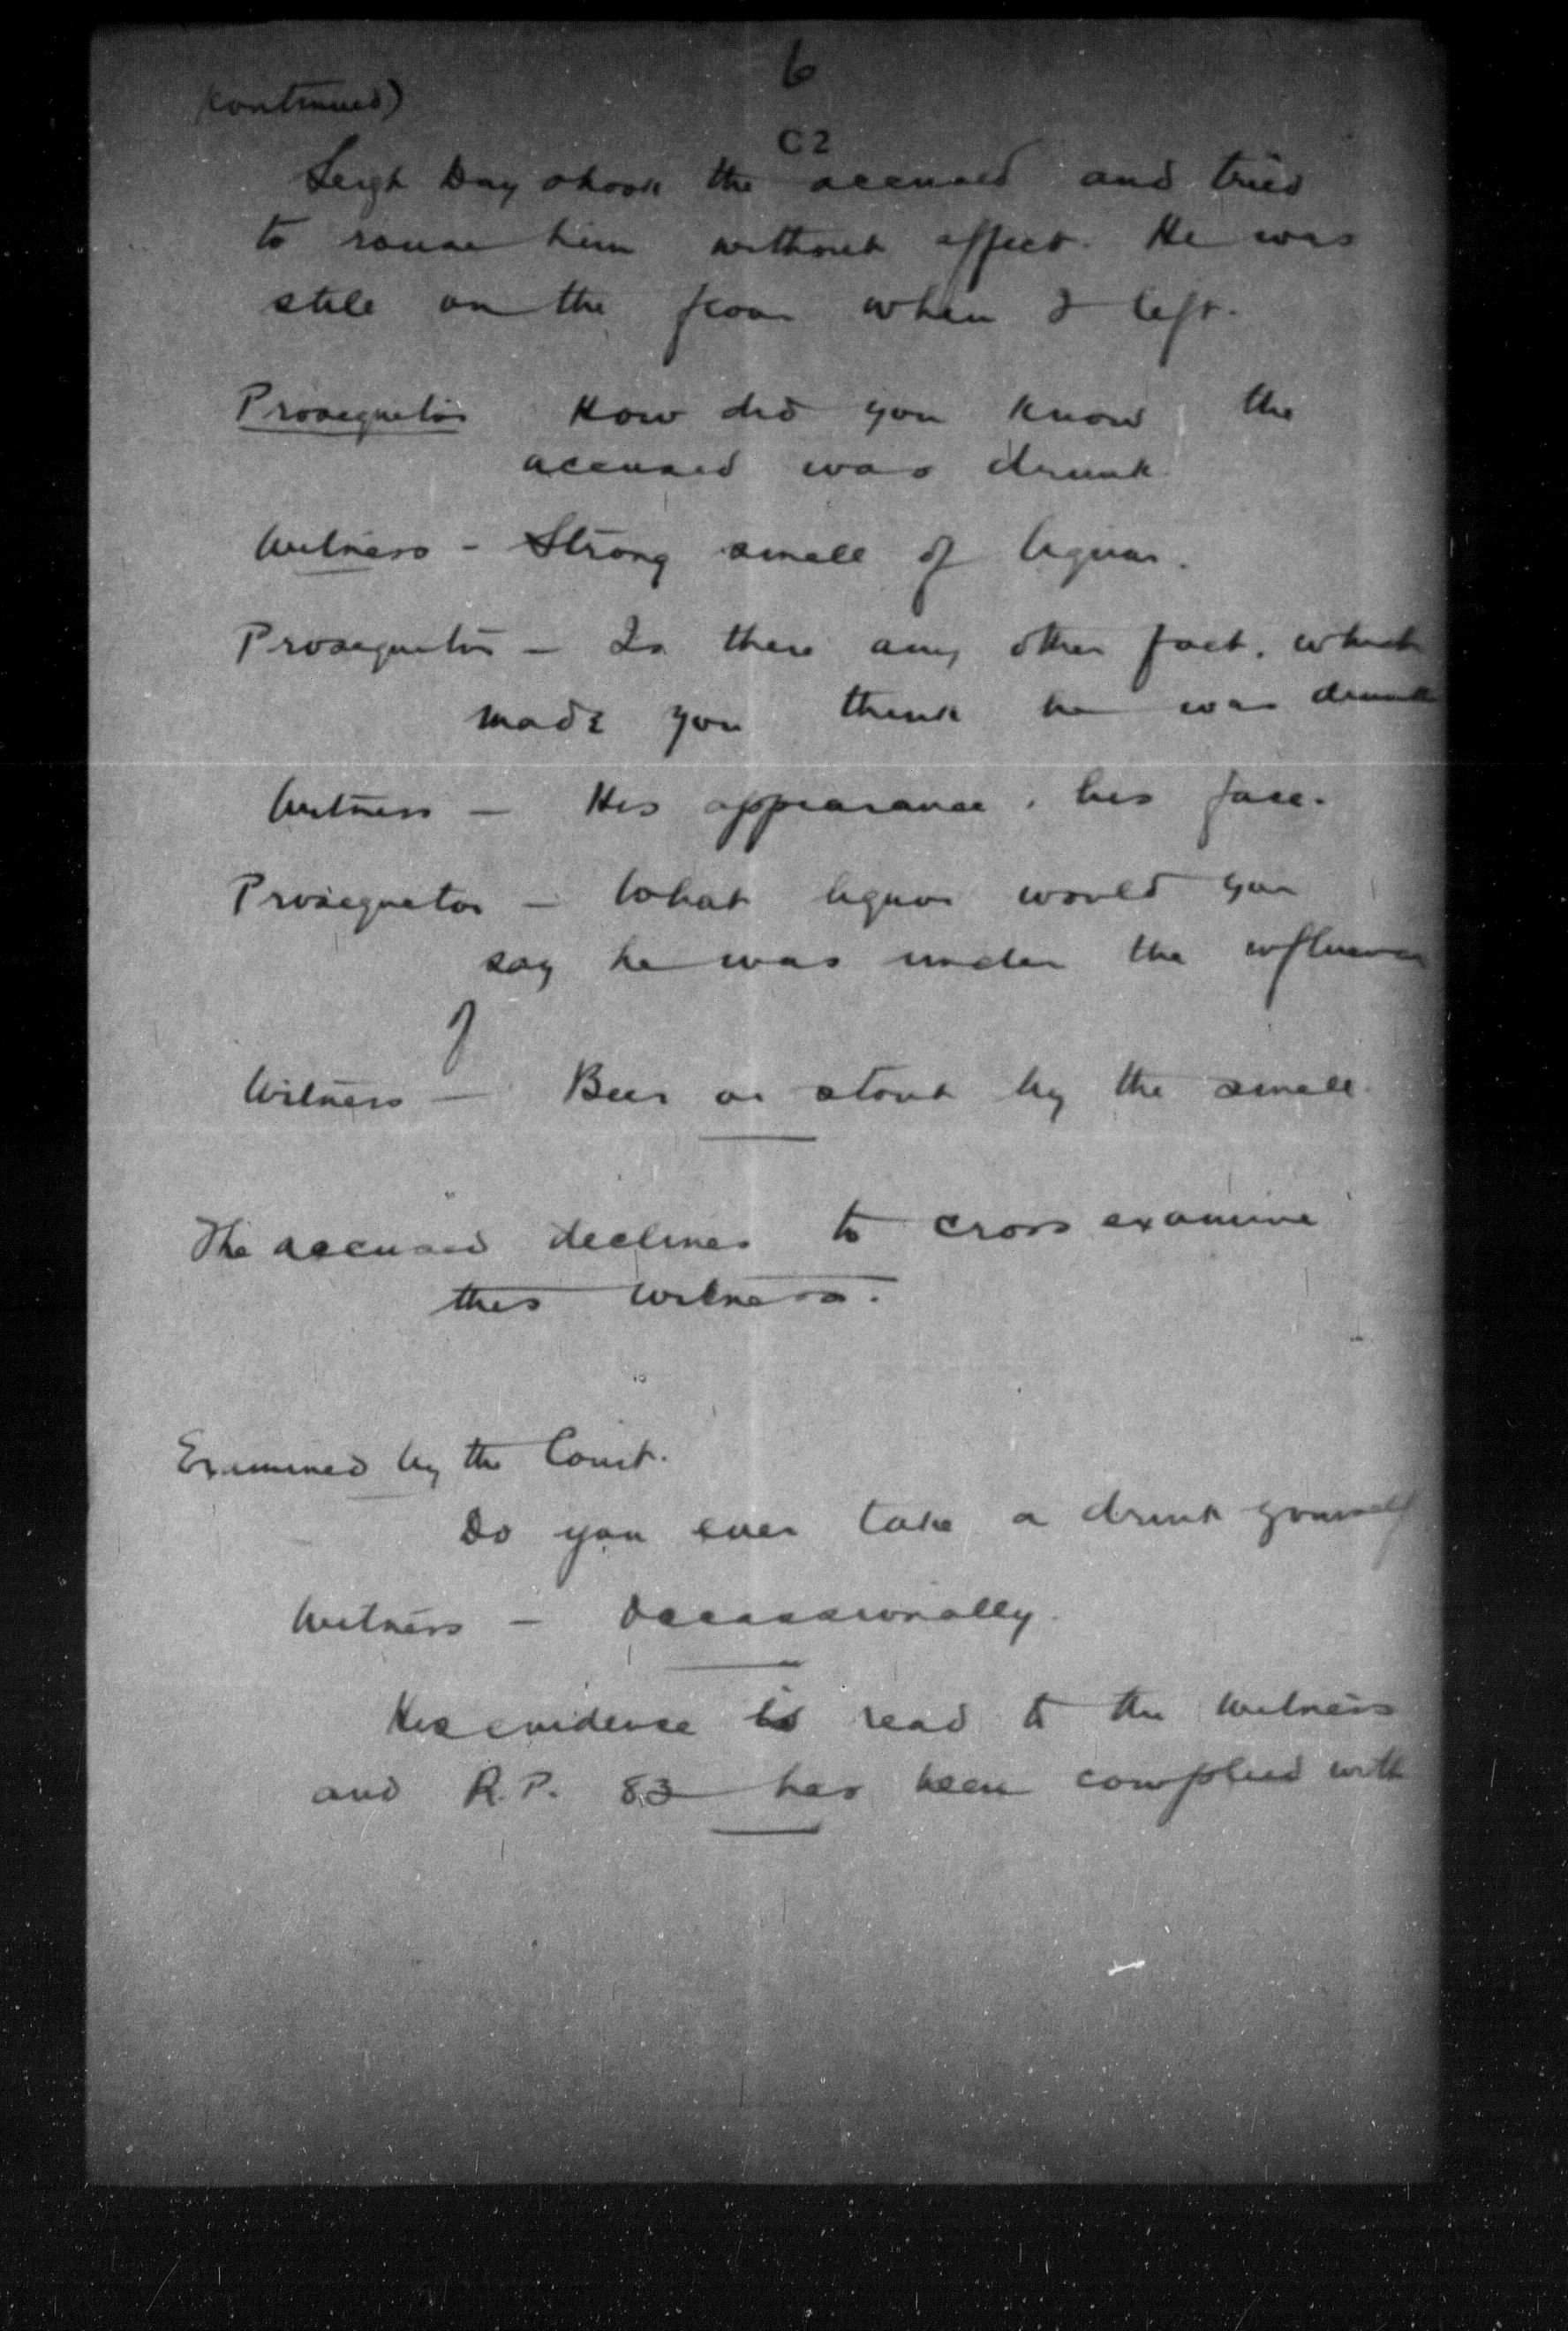 6
(continued)
C2
Leigh Day shook the accused and tried
to rouse him without effect. He was
still on the floor when I left.
Prosequetor How did you know the
accused was drunk
Witness - Strong smell of liquor.
Prosequetor - Is there any other fact, which
made you think he was drunk
Witness - His appearance, his face.
Prosequetor - What liquor would you
say he was under the influence
of
Witness - Beer or stout by the smell.
The accused declines to cross examine
this witness.
Examined by the Court.
Do you ever take a drink yourself
Witness - Occassionally.
His evidence is read to the witness
and R.P. 83 has been complied with